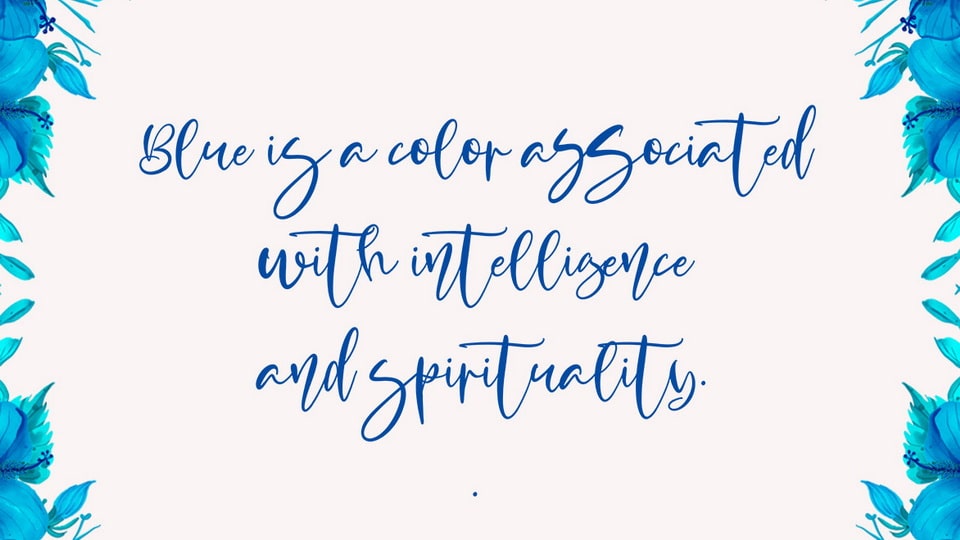 Blue is a color associated
with intelligence
and spirituality.
.